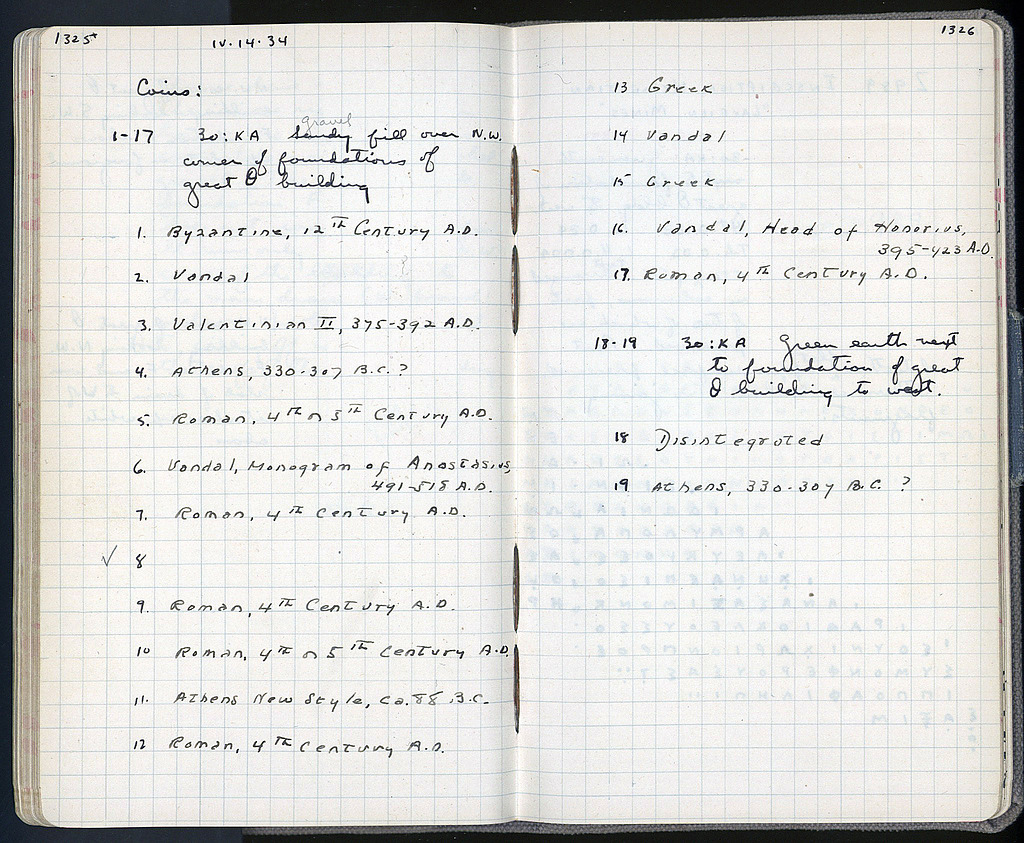 1325
IV.14.34
Coins:
gravel
1-17 30:KA Sandy fill over N.W.
corner of foundations of
great θ building
1. Byzantine, 12TH Century A.D.
2. Vandal ?
3. Valentinian II, 375-392 A.D.
4. Athens, 330-307 B.C.?
5. Roman, 4TH or 5TH Century A.D.
6. Vandal, Monogram of Anastasius,
491-518 A.D.
7. Roman, 4TH Century A.D.
√ 8
9. Roman, 4TH Century A.D.
10 Roman, 4TH or 5TH Century A.D.
11. Athens New Style, Ca. 88 B.C.
12 Roman, 4TH Century A.D.
1326
13 Greek
14 Vandal
15 Greek
16. Vandal, Head of Honorius,
395-423 A.D.
17. Roman, 4TH Century A.D.
18-19 30:KA Green earth next
to foundation of great
θ building to west.
18 Disintegrated
19 Athens, 330-307 B.C. ?